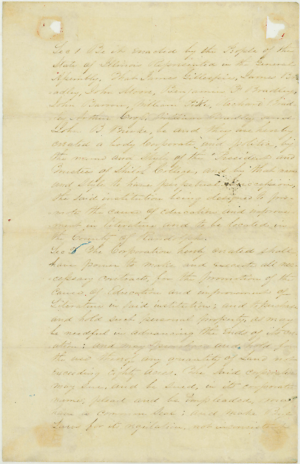 Sec 1. Be it enacted by the People of the
State of Illinois Represented in the General
Assembly, That James Gillespie, James B
John Moore, Benjamin
John
John B he and they are hereby
created a body Corporate and politic, by
the name and Style of the President and
Trustees of College, and by that name
and Style to have perpetual Succession,
the Said institution being designed to pro-
mote the cause of education and improve-
ment in literature and to be located in
the County of Randolph
Sec 2 The Corporation hereby created shall
have power to make and execute all ne-
cessary contracts, for the promotion of the
cause of Education and improvement of
Literature in Said institution; and to purchase
and hold such personal property as may
be needful in advancing the ends of its cre-
ation; and may and hold for
the use thereof any quantity of Land not ex-
ceeding Acres. The Said corporation
may Sue, and be Sued, in its corporate
name, plead and be impleaded, may
have a common Seal; and make Bye
Laws for its regulation, not inconsistent